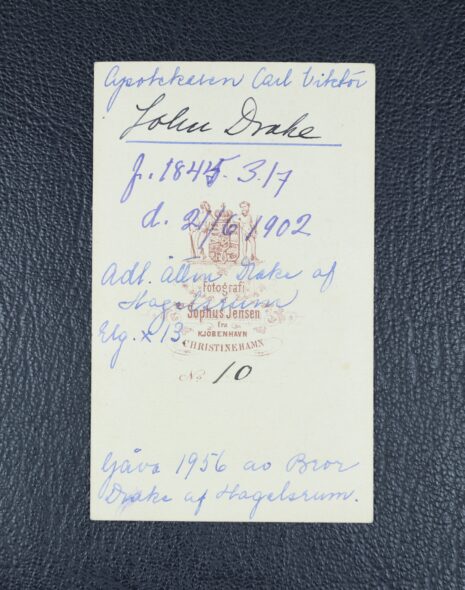 Apotekaren Carl Viktor
John Drake
f. 1845. 3.17
d. 21/6 1902
Adl. ätten Drake af
Hagelsrum
Fotografi
Sophus Jensen
fra
KJØBENHAVN
Elg. x 13
CHRISTINEHAMN
No 10
Gåva 1956 av Bror
Drake af Hagelsrum.